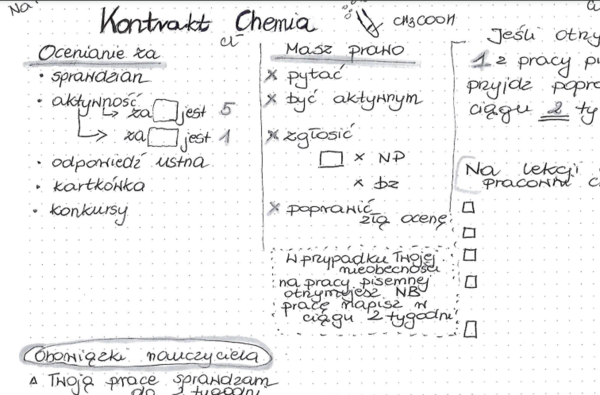 Na
Kontrakt Chemia
Cl⁻
CH3COOH
Ocenianie za
• sprawdzian
• aktywność
za □ jest 5
za □ jest 1
• odpowiedź ustna
• kartkówka
• konkursy
Masz prawo
× pytać
× być aktywnym
× zgłosić
□ × NP
× bz
× poprawić
złą ocenę
W przypadku Twojej
nieobecności
na pracy pisemnej
otrzymujesz NB
pracę napisz w
ciągu 2 tygodni
Jeśli otrzy
1 z pracy pi
przyjdź popra
ciągu 2 ty
Na lekcji
pracowni c
Obowiązki nauczyciela
Twoją pracę sprawdzam
do 2 tygodni